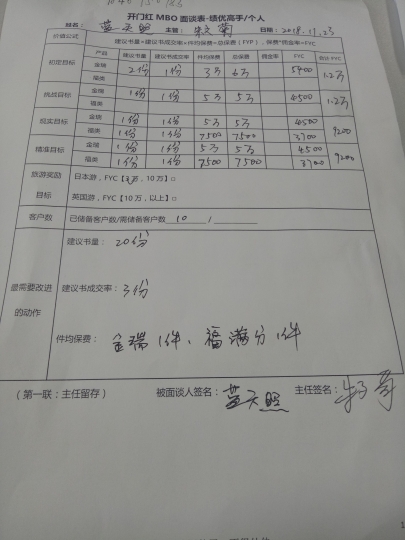 开门红 MBO 面谈表-绩优高手/个人
姓名： 蓝天照 主管： 日期：2018.11.23
价值公式 建议书量*建议书成交率*件均保费=总保费（FYP），保费*佣金率=FYC
产品 建议书量 建议书成交率 件均保费 总保费 佣金率 FYC 合计 FYC
初定目标 金瑞 2份 1份 3万 6万 5400 1.2万
福类
挑战目标 金瑞 1份 1份 5万 5万 4500 1.2万
福类
现实目标 金瑞 1份 1份 5万 5万 4500 9200
福类 1份 1份 7500 7500 3700
精准目标 金瑞 1份 1份 5万 5万 4500 9200
福类 1份 1份 7500 7500 3700
旅游奖励目标 日本游，FYC【3万，10万）□
英国游，FYC【10万，以上】□
客户数 已储备客户数/需储备客户数 10 /
最需要改进的动作
建议书量： 20份
建议书成交率： 3份
件均保费： 金瑞1件、福满分1件
（第一联：主任留存） 被面谈人签名： 蓝天照 主任签名：